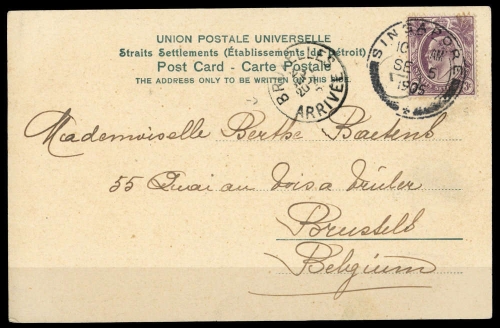 UNION POSTALE UNIVERSELLE
Straits Settlements (Établissements du Détroit)
Post Card - Carte Postale
THE ADDRESS ONLY TO BE WRITTEN ON THIS SIDE.
BRUXELLES
ARRIVÉE
SINGAPORE
10 AM
SE 5
1905
Mademoiselle Berthe Baetens
55 Quai au Bois à Brûler
Brussels
Belgium